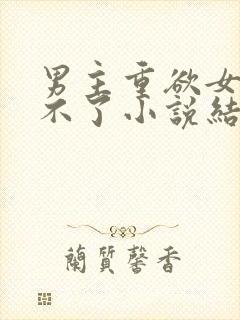 男主重欲女
不了小說結
蘭質馨香